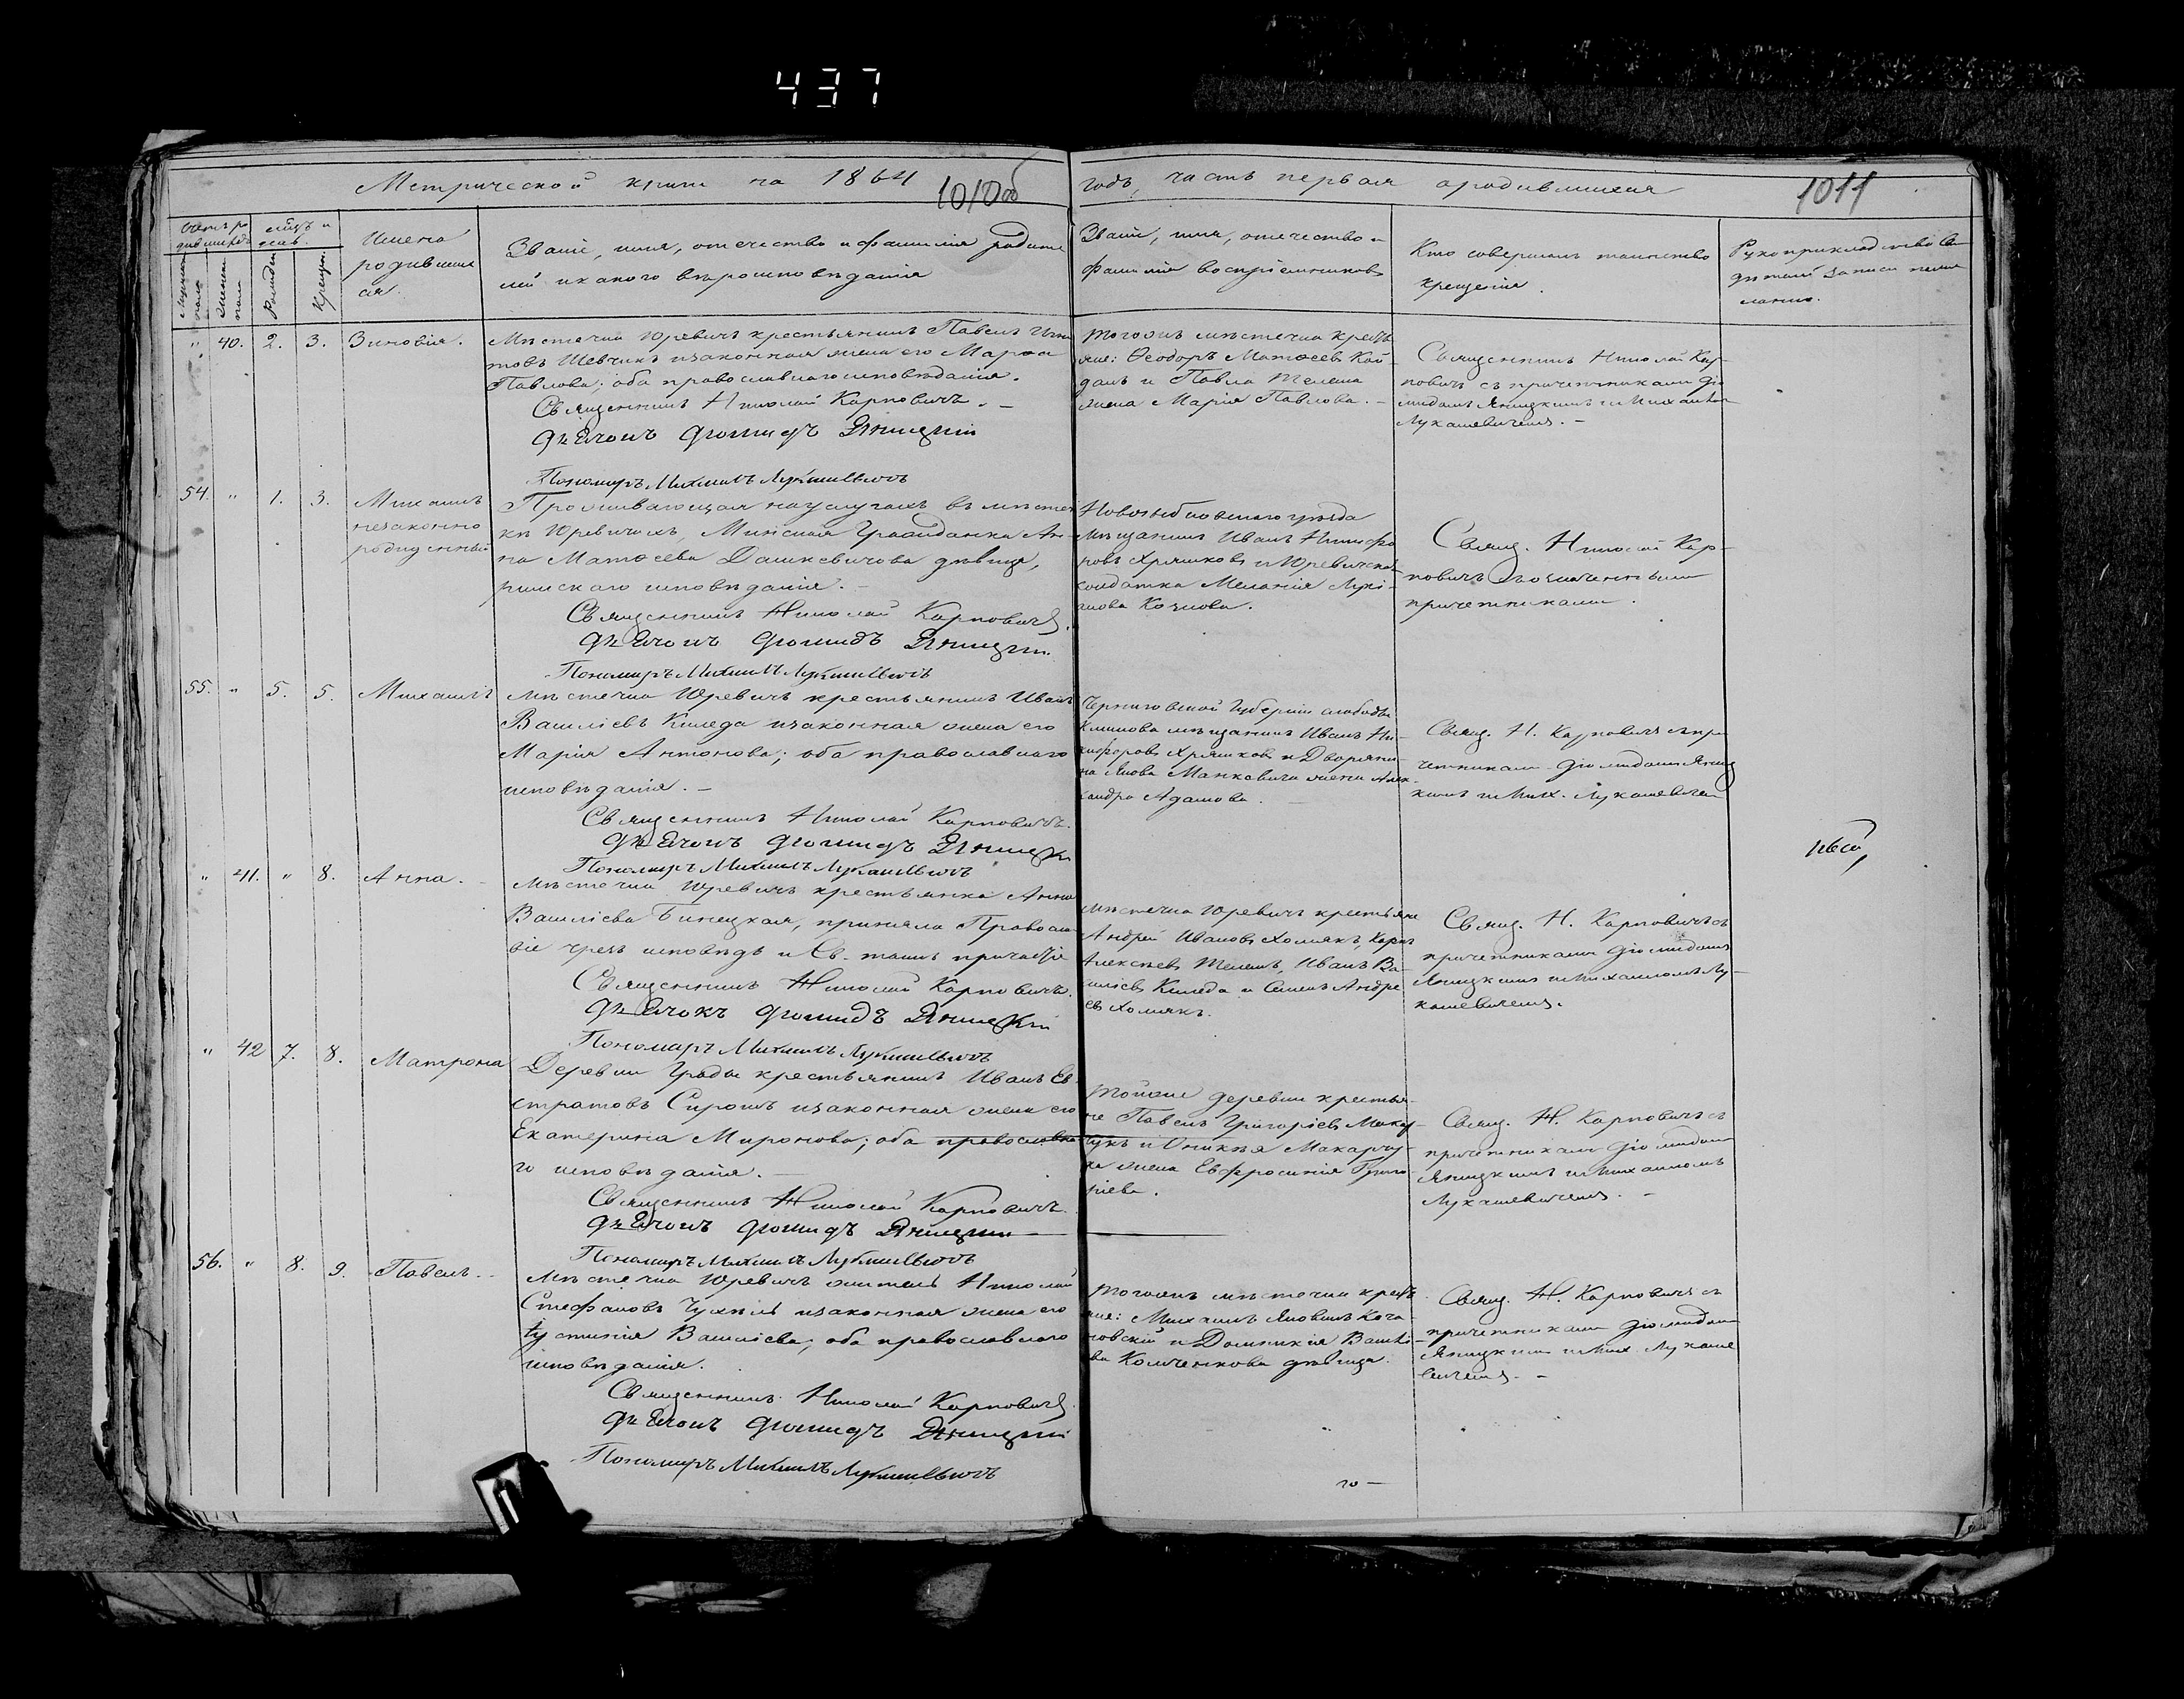 437
Метрической книги на 1864
1010об
годъ, часть первая о родившихся
1011
Имена
родивших
ся.
Званіе, имя, отечество и фамилія родите
лей и какого вѣроисповѣданія
Званіе, имя, отечество и
фамилія воспріемниковъ
Кто совершалъ таинство
крещенія.
Рукоприкладство сви
дѣтелей записи по же
ланію.
" 40. 2. 3. Зиновія.
Мѣстечка Юревичъ крестьянинъ Павелъ Игна
товъ Шевчикъ и законная жена его Марѳа
Павлова; оба православнаго исповѣданія.
Священникъ Николай Карповичъ.
Дьячокъ Діомидъ Яницкій
Пономарь Михаилъ Лукашевичъ
Тогожъ мѣстечка кресть
яне: Ѳеодоръ Матѳеевъ Кай
данъ и Павла Телеша
жена Марія Павлова. —
Священникъ Николай Кар-
повичъ съ причетниками Діо
мидомъ Яницкимъ и Михаиломъ
Лукашевичемъ. —
54. " 1. 3. Михаилъ
незаконно
рожденный
Проживающая на услугахъ въ мѣстеч
кѣ Юревичахъ, Минская Гражданка Ан-
на Матѳеева Дашкевичова дѣвица,
римскаго исповѣданія. —
Священникъ Николай Карповичъ.
Дьячокъ Діомидъ Яницкій.
Пономарь Михаилъ Лукашевичъ
Новозыбковскаго уѣзда
мѣщанинъ Иванъ Никифо
ровъ Хряшковъ и Юревичская
солдатка Меланія Лукі-
анова Козлова.
Свящ. Николай Кар-
повичъ съ означенными
причетниками.
55. " 5. 5. Михаилъ
Мѣстечка Юревичъ крестьянинъ Иванъ
Василіевъ Киледа и законная жена его
Марія Антонова; оба православнаго
исповѣданія. —
Священникъ Николай Карповичъ.
Дьячокъ Діомидъ Яницкій
Пономарь Михаилъ Лукашевичъ
Черниговской Губерніи слободы
Климова мѣщанинъ Иванъ Ни-
кифоровъ Хряшковъ и Дворяни-
на Якова Манкевича жена Алек-
сандра Адамова.
Свящ. Н. Карповичъ съ при
четниками Діомидомъ Яниц
кимъ и Мих. Лукашевичемъ
" 41. " 8. Анна.
Мѣстечка Юревичъ крестьянка Анна
Василіева Бинецкая, приняла Правосла-
віе чрезъ исповѣдь и Св. таинъ причастіе
Священникъ Николай Карповичъ.
Дьячокъ Діомидъ Яницкій
Пономарь Михаилъ Лукашевичъ
Мѣстечка Юревичъ крестьяне
Андрей Ивановъ Хомякъ, Карпъ
Алексѣевъ Телешъ, Иванъ Ва-
силіевъ Киледа и Семенъ Андре
евъ Хомякъ.
Свящ. Н. Карповичъ съ
причетниками Діомидомъ
Яницкимъ и Михаиломъ Лу-
кашевичемъ.
" 42 7. 8. Матрона
Деревни Грады крестьянинъ Иванъ Ев
стратовъ Сирошъ и законная жена его
Екатерина Миронова; оба православна
го исповѣданія. —
Священникъ Николай Карповичъ.
Дьячокъ Діомидъ Яницкій
Пономарь Михаилъ Лукашевичъ
Тойже деревни крестья-
не Павелъ Григоріевъ Макар-
чукъ и Оникѣя Макарчу-
ка жена Евфросинія Григо
ріева.
Свящ. Н. Карповичъ съ
причетниками Діомидомъ
Яницкимъ и Михаиломъ
Лукашевичемъ. —
56. " 8. 9. Павелъ.
Мѣстечка Юревичъ житель Николай
Стефановъ Чухнѣль и законная жена его
Іустинія Василіева; оба православнаго
исповѣданія.
Священникъ Николай Карповичъ
Дьячокъ Діомидъ Яницкій
Пономарь Михаилъ Лукашевичъ
Тогожъ мѣстечка кресть
яне: Михаилъ Яковлевъ Коча
новскій и Домникія Василі-
ева Колченкова дѣвица.
Свящ. Н. Карповичъ съ
причетниками Діомидомъ
Яницкимъ и Мих. Лукаше
вичемъ. —
го —